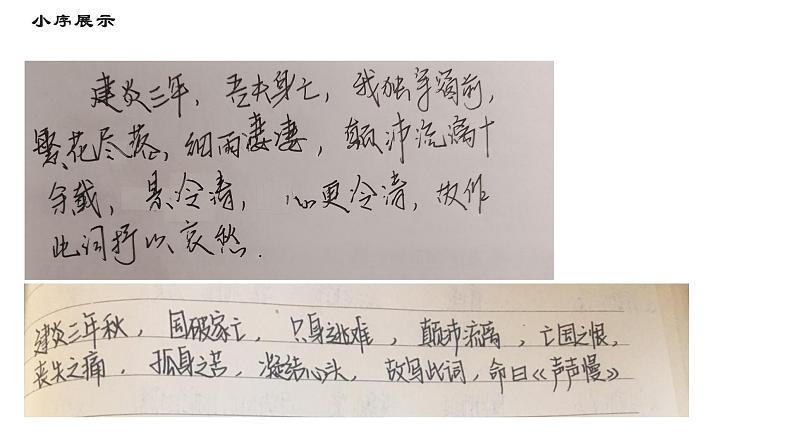 小序展示
建炎三年，吾夫身亡，我独守窗前，
繁花尽落，细雨凄凄，颠沛流离十
余载，景冷清，心更冷清，故作
此词抒以哀愁.
建炎三年秋，国破家亡，只身逃难，颠沛流离，亡国之恨，
丧失之痛，孤身之苦，凝结心头，故写此词，命曰《声声慢》